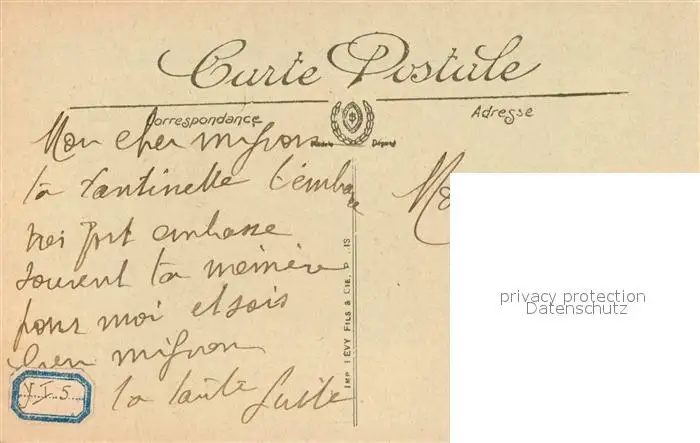 Carte Postale
Correspondance
Adresse
Marque Déposé
Mon cher mignon
ta tantinette t'embrasse
trei fort embasse
souvent ta mémère
pour moi et sois
bien mignon
ta tante
IMP. LEVY FILS & CIE, PARIS
privacy protection
Datenschutz